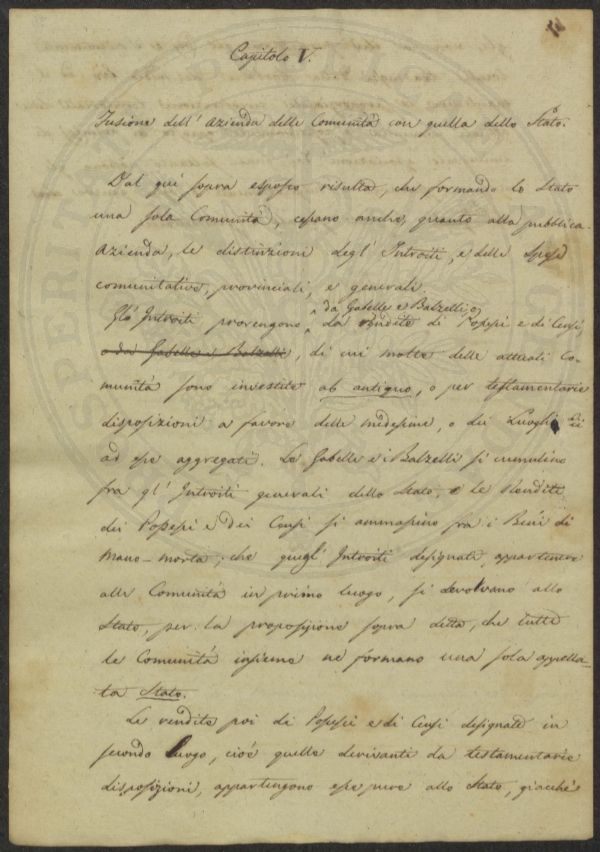 Capitolo V.
Fusione dell' Azienda delle Comunità con quella dello Stato.
Dal quì sopra esposto risulta, che formando lo Stato
una sola Comunità, cessano anche, quanto alla pubblica
Azienda, le distinzioni degl' Introiti, e delle Spese
comunitative, provinciali, e generali.
da Gabelle e Balzelli, o
Gl' Introiti provengono da rendite di Possessi e di Censi,
o da Gabelle e Balzelli, di cui molte delle attuali Co-
munità sono investite ab antiquo, o per testamentarie
disposizioni a favore delle medesime, o dei Luoghi Pii
ad esse aggregati. Le Gabelle e i Balzelli si cumulino
fra gl' Introiti generali dello Stato, e le Rendite
dei Possessi e dei Censi si ammassino fra i Beni di
Mano-morta; che quegl' Introiti designati appartenere
alle Comunità in primo luogo, si devolvano allo
Stato, per la proposizione sopra detta, che tutte
le Comunità insieme ne formano una sola appella-
ta Stato.
Le rendite poi di Possessi e di Censi designate in
secondo luogo, cioè quelle derivanti da testamentarie
disposizioni, appartengono esse pure allo Stato, giacchè